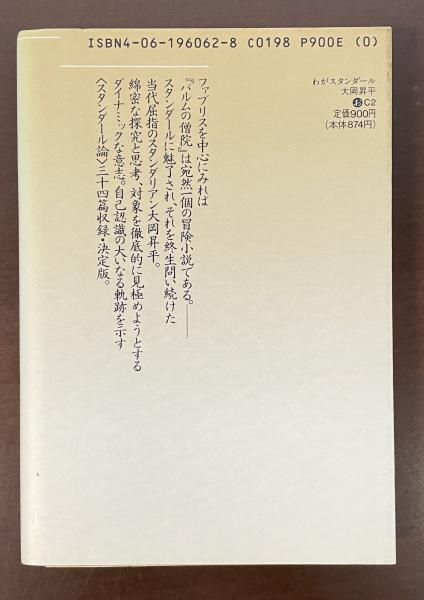 ISBN4-06-196062-8 C0198 P900E (0)
わがスタンダール
大岡昇平
おC2
定価900円
(本体874円)
ファブリスを中心にみれば
『パルムの僧院』は宛然一個の冒険小説である。——
スタンダールに魅了され、それを終生問い続けた
当代屈指のスタンダリアン大岡昇平。
綿密な探究と思考、対象を徹底的に見極めようとする
ダイナミックな意志。自己認識の大いなる軌跡を示す
〈スタンダール論〉三十四篇収録・決定版。